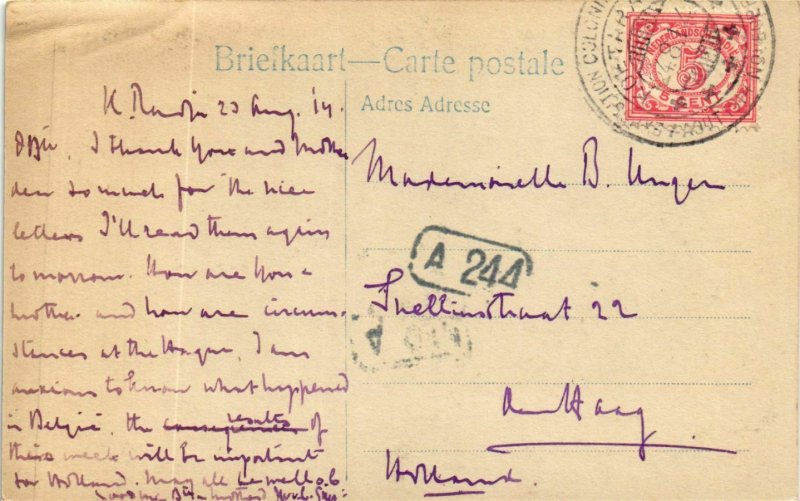 Briefkaart—Carte postale
Adres Adresse
NEDERLANDSCH-INDIË
5
CENT
23 Aug. '14.
I thank you and Mother
dear so much for the nice
letters I'll read them again
to morrow. How are you &
mother and how are circum-
stances at the Hague, I am
anxious to know what happened
in België, the consequences results of
this week will be important
for Holland. May all be well
Mademoiselle B. Unger
Snellinckstraat 22
Den Haag
Holland.
A 244
A